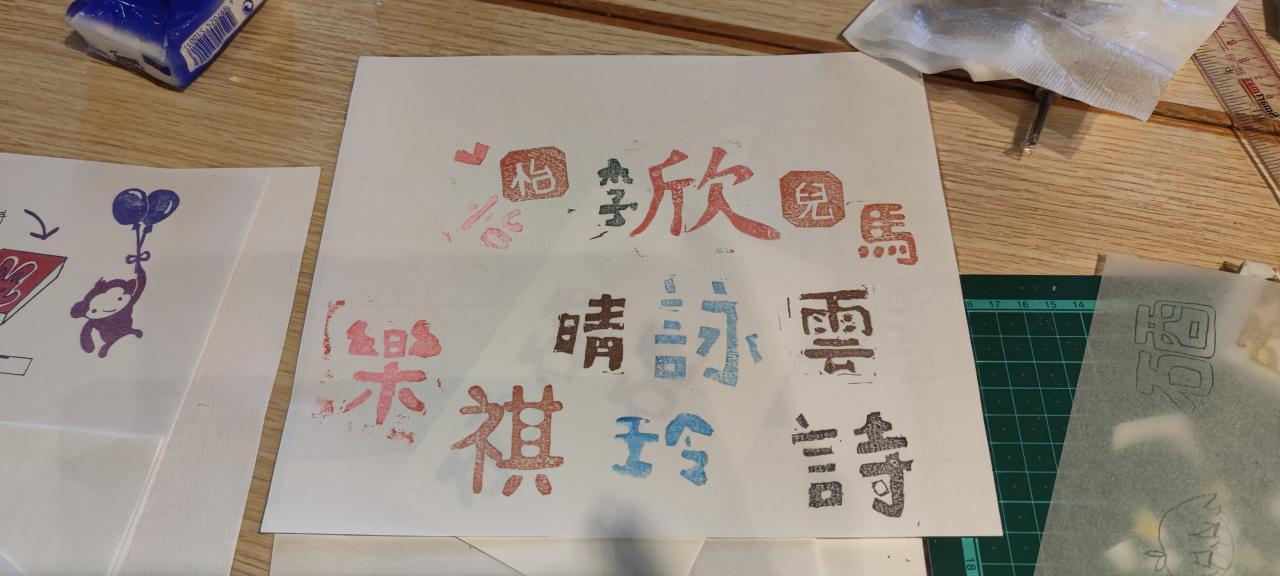 怡 李 欣 兒 馬
樂 晴 詠 雲
祺 玲 詩
18 17 16 15 14
18